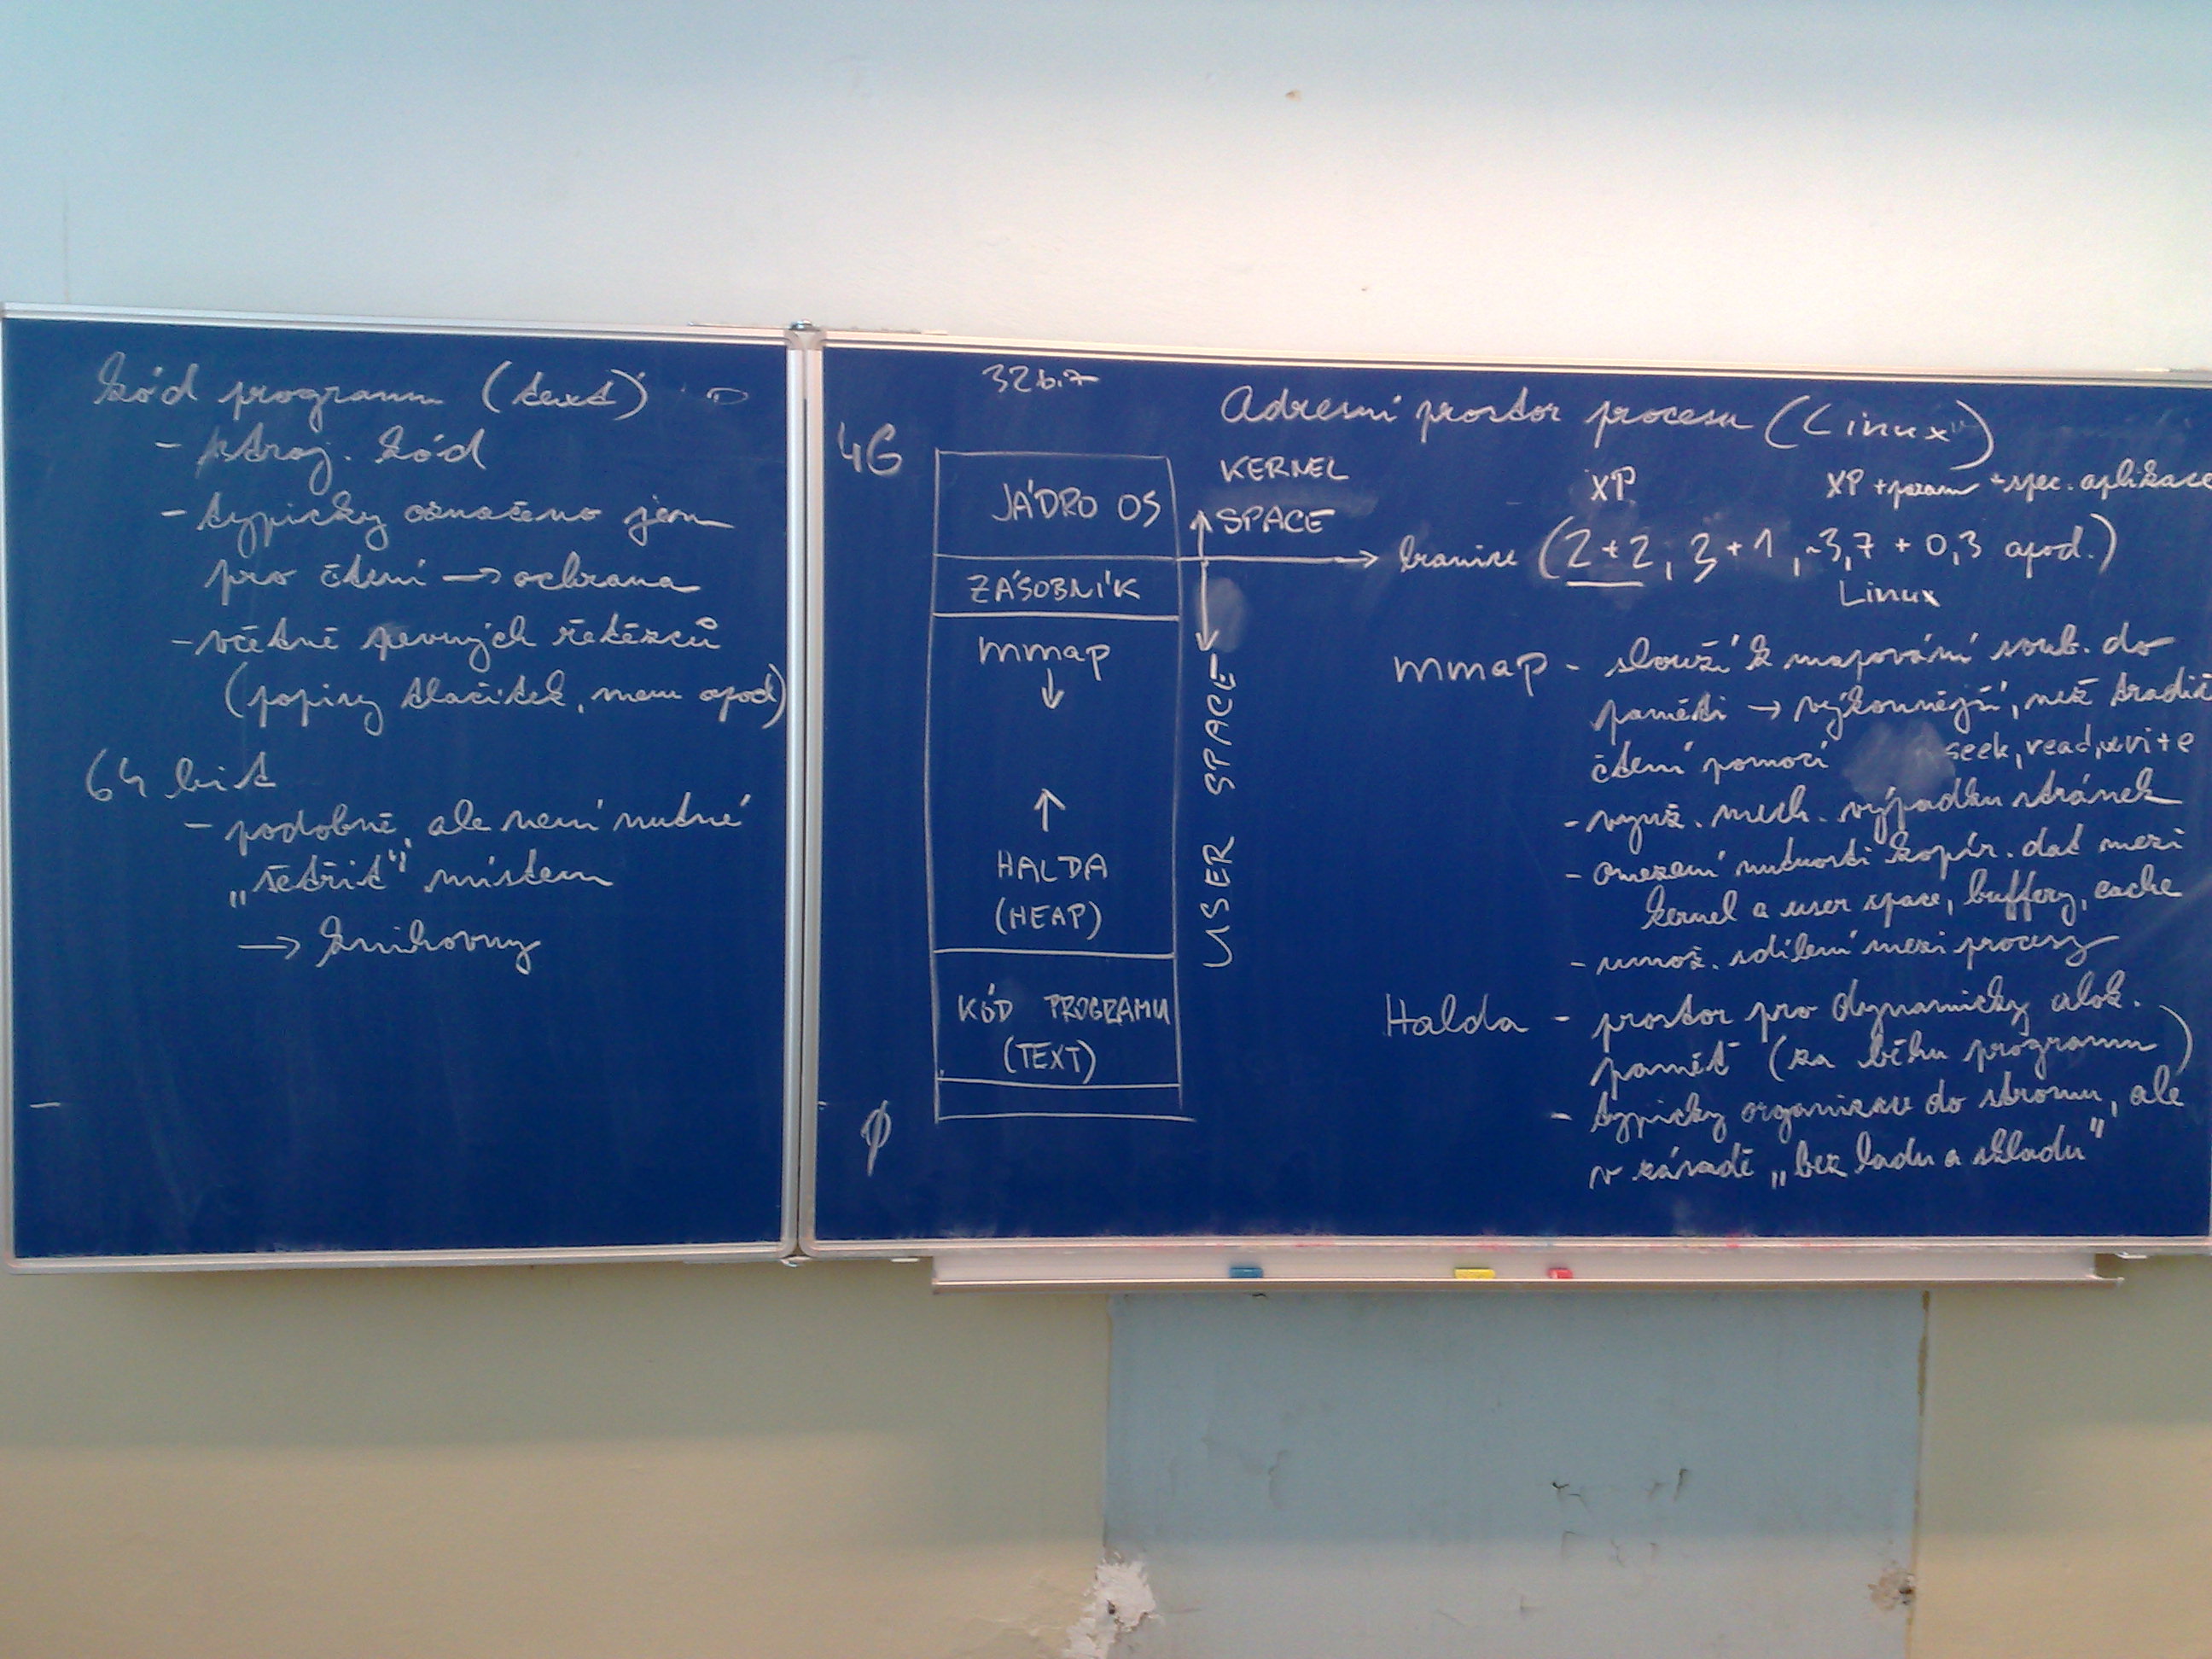 kód programu (text)
- stroj. kód
- typicky označeno jen
pro čtení → ochrana
- včetně pevných řetězců
(popisy tlačítek, menu apod)
64 bit
- podobně, ale není nutné
„šetřit" místem
→ knihovny
32bit
4G
JÁDRO OS
ZÁSOBNÍK
mmap
↓
↑
HALDA
(HEAP)
KÓD PROGRAMU
(TEXT)
Ø
KERNEL
SPACE
USER SPACE
Adresní prostor procesu (Linux)
XP
XP + param + spec. aplikace
→ hranice (2+2, 3+1, ~3,7 + 0,3 apod.)
Linux
mmap - slouží k mapování soub. do
paměti → výkonnější, než tradič
čtení pomocí seek, read, write
- využ. mech. výpadku stránek
- omezení nutnosti kopír. dat mezi
kernel a user space, buffery, cache
- umož. sdílení mezi procesy
Halda - prostor pro dynamicky alok.
paměť (za běhu programu)
- typicky organizace do stromu, ale
v zásadě „bez ladu a skladu"